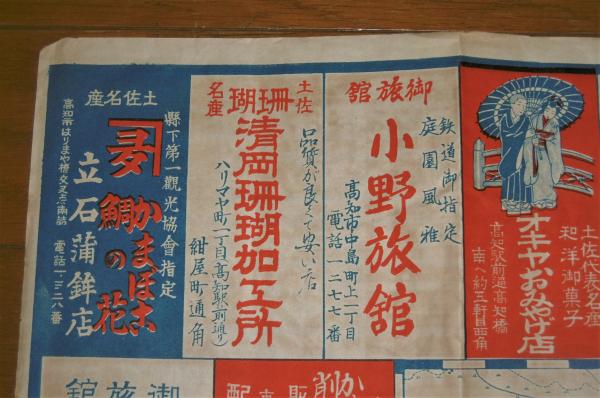 土佐代表名産
和洋御菓子
オキヤおみやげ店
高知駅前通高知橋
南へ約三軒目西角
御旅舘
鉄道御指定
庭園風雅
小野旅舘
高知市中島町上一丁目
電話一二七七番
土佐
珊瑚
名産
品質が良くて安い店
清岡珊瑚加工所
ハリマヤ町一丁目(高知駅前通り)
紺屋町通角
土佐名産
縣下第一觀光協會指定
かまぼこ
鯛の花
立石蒲鉾店
電話一、三二八番
高知市はりまや橋交叉点南詰
か
削
配
御旅舘